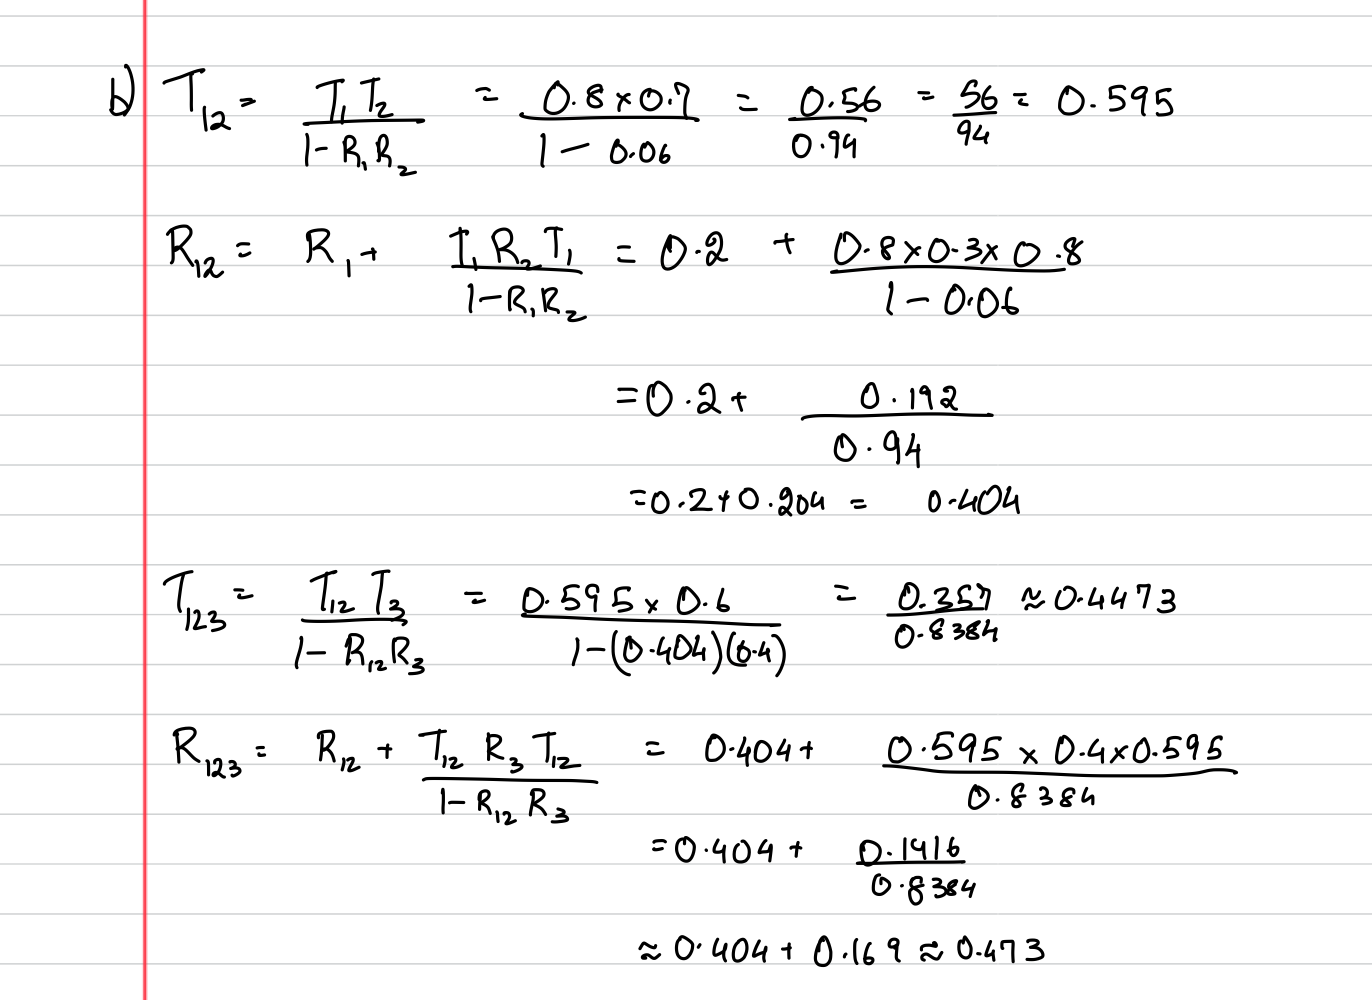 b) T₁₂ = T₁T₂ / (1 - R₁R₂) = (0.8 × 0.7) / (1 - 0.06) = 0.56 / 0.94 = 56 / 94 = 0.595
R₁₂ = R₁ + T₁R₂T₁ / (1 - R₁R₂) = 0.2 + (0.8 × 0.3 × 0.8) / (1 - 0.06)
= 0.2 + 0.192 / 0.94
= 0.2 + 0.204 = 0.404
T₁₂₃ = T₁₂T₃ / (1 - R₁₂R₃) = (0.595 × 0.6) / (1 - (0.404)(0.4)) = 0.357 / 0.8384 ≈ 0.4473
R₁₂₃ = R₁₂ + T₁₂R₃T₁₂ / (1 - R₁₂R₃) = 0.404 + (0.595 × 0.4 × 0.595) / 0.8384
= 0.404 + 0.1416 / 0.8384
≈ 0.404 + 0.169 ≈ 0.473